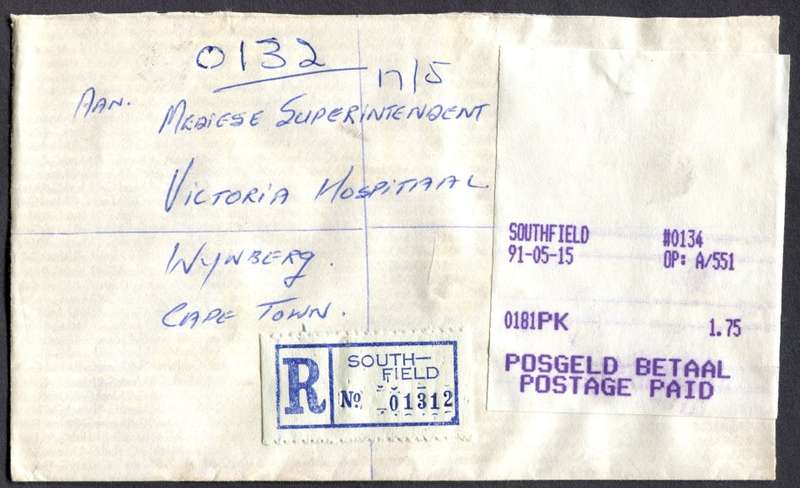 0132
17/5
AAN.
MEDIESE SUPERINTENDENT
VICTORIA HOSPITAAL
WYNBERG.
CAPE TOWN.
SOUTHFIELD #0134
91-05-15 OP: A/551
0181PK 1.75
POSGELD BETAAL
POSTAGE PAID
R
SOUTH-
FIELD
No. 01312